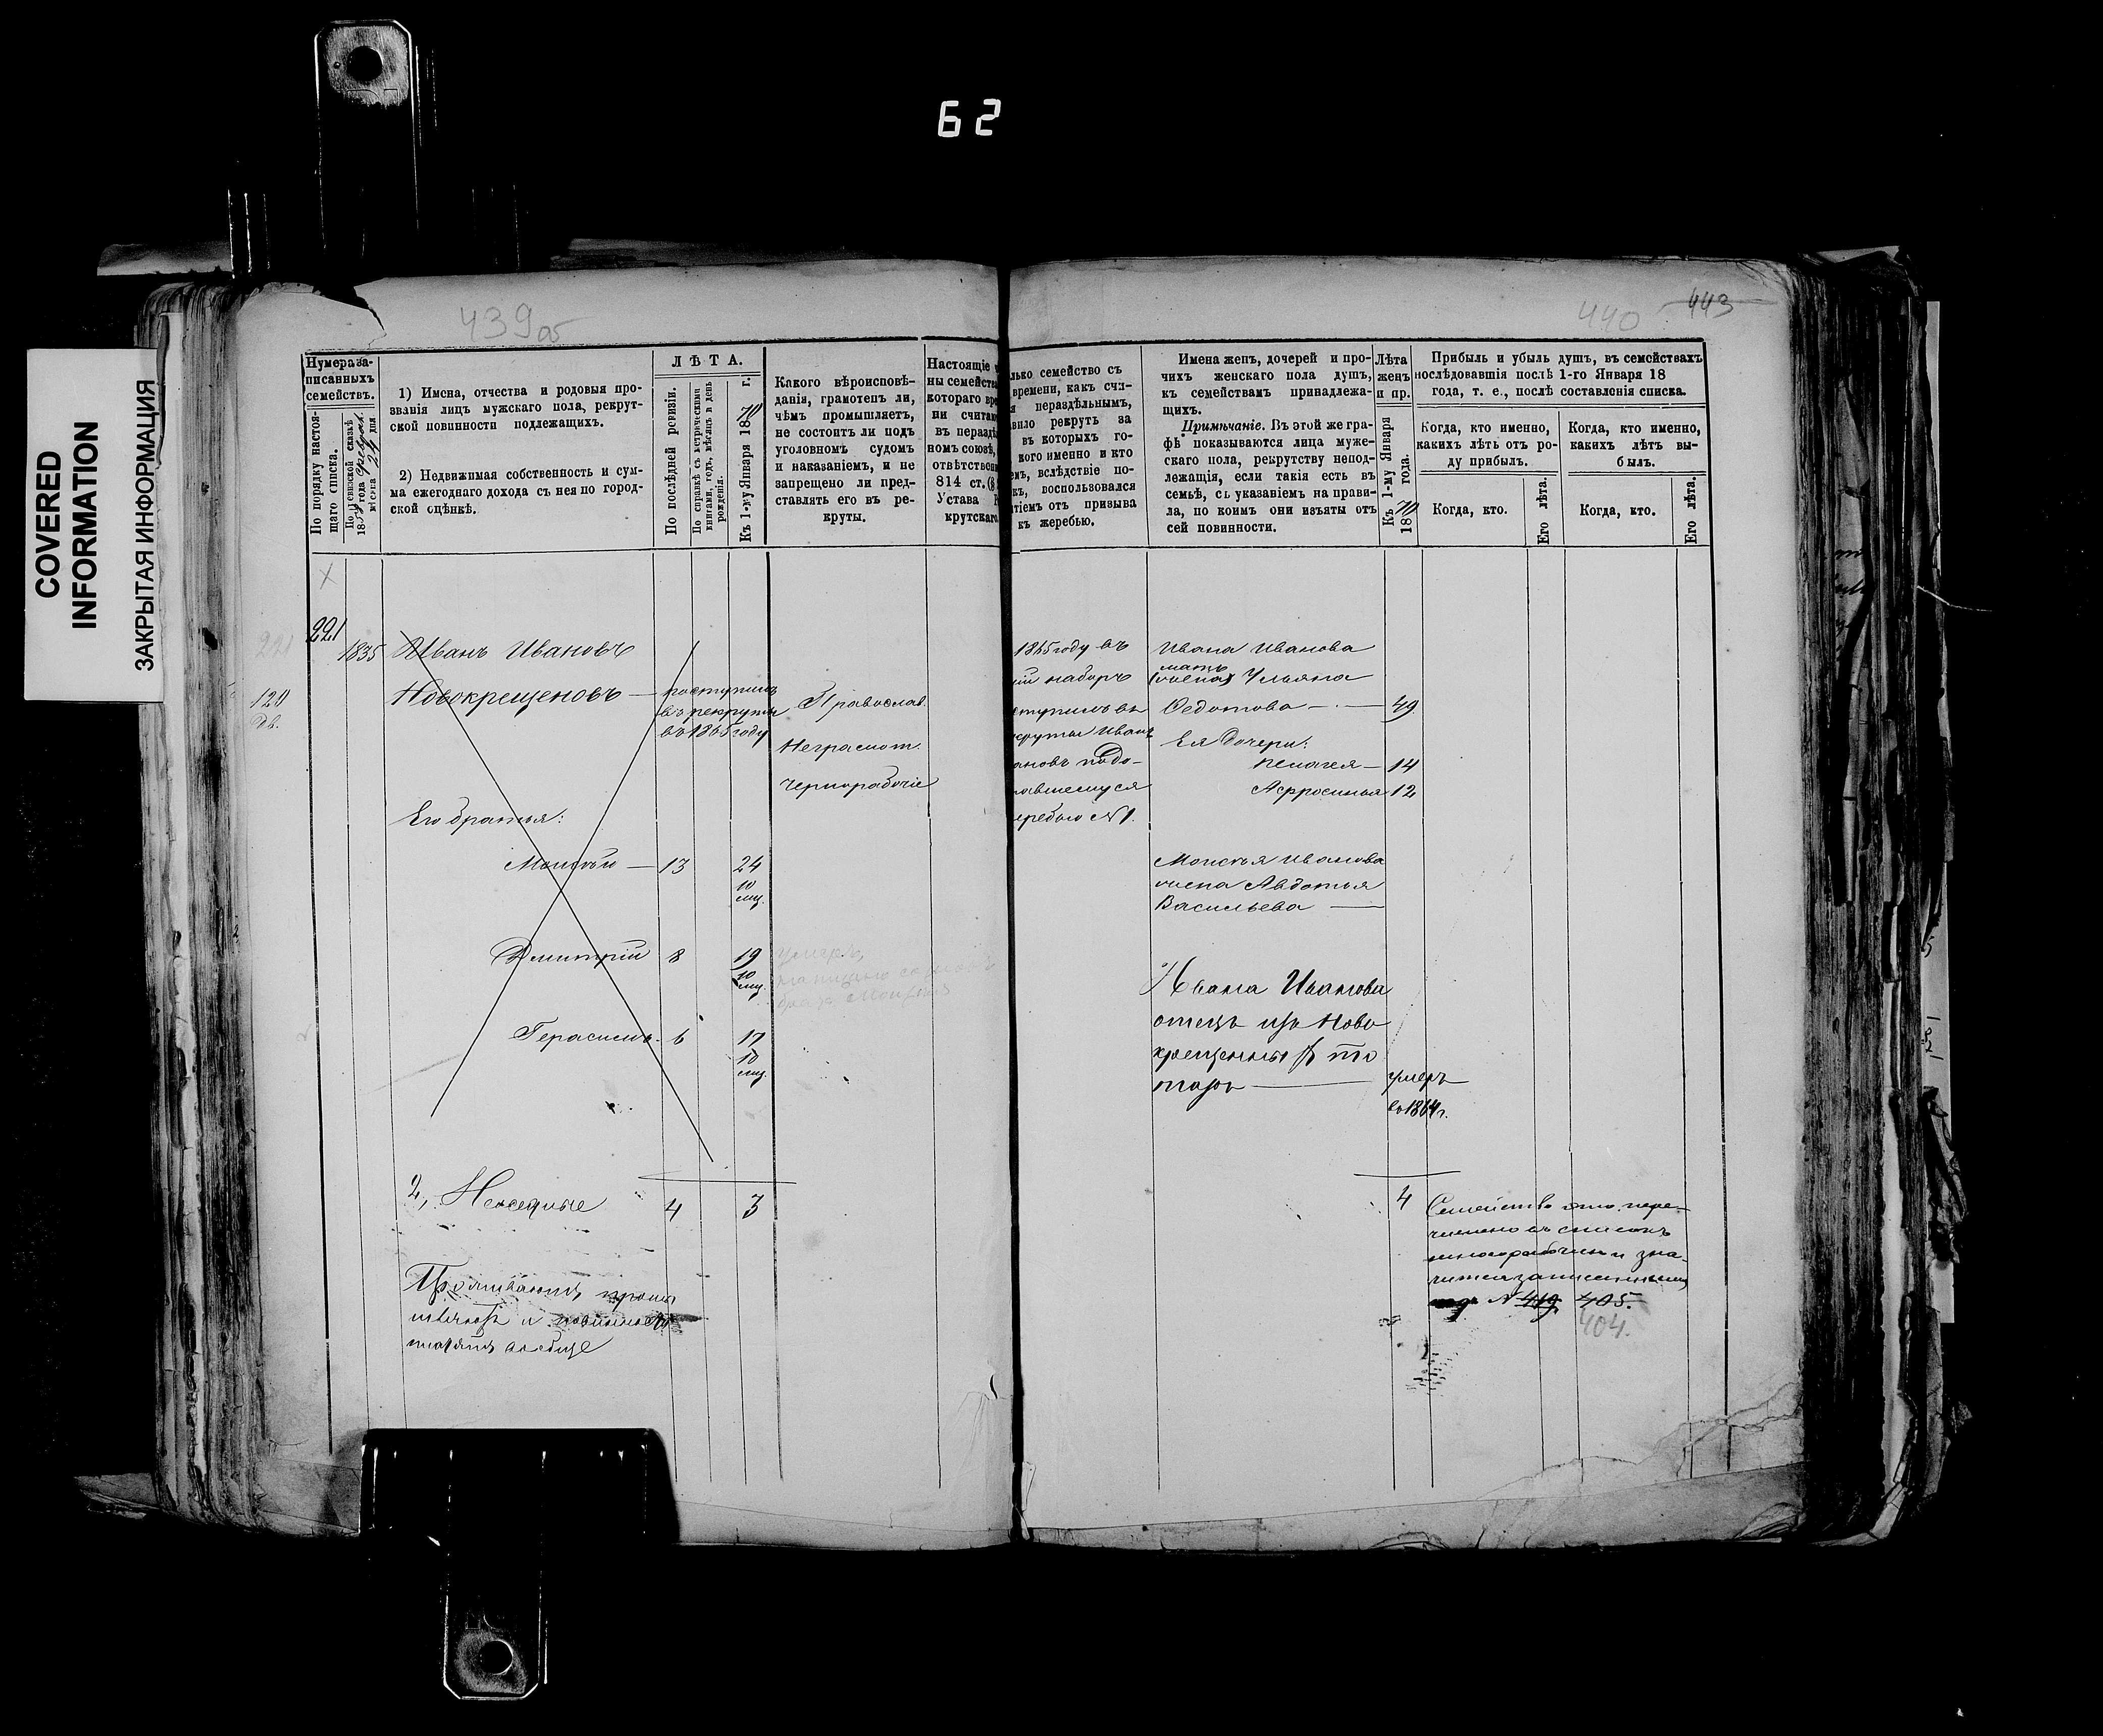 62
COVERED
INFORMATION
ЗАКРЫТАЯ ИНФОРМАЦИЯ
439 об
440 443
Нумера за-
писанныхъ
семействъ.
По порядку настоя-
щаго списка.
По ревизской сказкѣ
1858 года
мѣсяца 24 дня
1) Имена, отчества и родовыя про-
званія лицъ мужскаго пола, рекрут-
ской повинности подлежащихъ.
2) Недвижимая собственность и сум-
ма ежегоднаго дохода съ нея по город-
ской оцѣнкѣ.
ЛѢТА.
По послѣдней ревизіи.
По справкѣ съ метрическими
книгами, годъ, мѣсяцъ и день
рожденія.
Къ 1-му Января 1870 г.
Какого вѣроисповѣ-
данія, грамотенъ ли,
чѣмъ промышляетъ,
не состоитъ ли подъ
уголовномъ судомъ
и наказаніемъ, и не
запрещено ли пред-
ставлять его въ ре-
круты.
Настоящіе
ны семейства
котораго вре
ни счита
въ перазд
номъ союзѣ,
отвѣтствен
814 ст. (
Устава Р
крутскаго
лько семейство съ
времени, какъ счи-
я нераздѣльнымъ,
авило рекрутъ за
въ которыхъ го-
кого именно и кто
емъ, вслѣдствіе по-
къ, воспользовался
тіемъ отъ призыва
къ жеребью.
Имена женъ, дочерей и про-
чихъ женскаго пола душъ,
къ семействамъ принадлежа-
щихъ.
Примѣчаніе. Въ этой же гра-
фѣ показываются лица муже-
скаго пола, рекрутству непод-
лежащія, если такія есть въ
семьѣ, съ указаніемъ на прави-
ла, по коимъ они изъяты отъ
сей повинности.
Лѣта
женъ
и пр.
Къ 1-му Января
1870 года.
Прибыль и убыль душъ, въ семействахъ
послѣдовавшія послѣ 1-го Января 18
года, т. е., послѣ составленія списка.
Когда, кто именно,
какихъ лѣтъ отъ ро-
ду прибылъ.
Когда, кто именно,
какихъ лѣтъ вы-
былъ.
Когда, кто.
Его лѣта.
Когда, кто.
Его лѣта.
221
221
1835
120
дв.
Иванъ Ивановъ
Новокрещеновъ —
поступилъ
въ рекруты
въ 1865 году
Православ.
Неграмот.
Чернорабочіе
Его братья:
Моисѣй — 13 24
10
мц.
Дмитрій 8 19
10
мц.
умеръ,
Герасимъ. 6 17
10
мц.
2,
4 3
1865 году въ
ій наборъ
ступилъ въ
круты Иванъ
ановъ по до-
авшемуся
еребью №1.
Ивана Иванова
мать
(жена) Ульяна
Федотова — 49
Ея дочери:
Пелагея — 14
Афросинья 12
Моисѣя Иванова
жена Авдотья
Васильева —
Ивана Иванова
отецъ изъ Ново
крещенныхъ та
таръ —
умеръ
въ 1864 г.
4
Семейство это пере-
числено въ списокъ
чернорабочихъ и зна-
чится записаннымъ
подъ № 419. 405.
404.